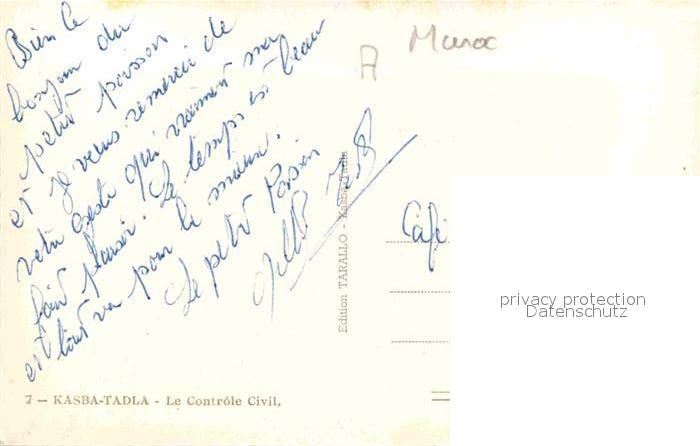 Bien le
bonjour du
petit poisson
et je vous remercie de
votre geste qui vraiment m'a
fait plaisir. Le temps est beau
et tout va pour le mieux.
Le petit Poisson
A Maroc
Edition TARALLO - Kasba-Tadla
Café
privacy protection
Datenschutz
7 — KASBA-TADLA - Le Contrôle Civil.